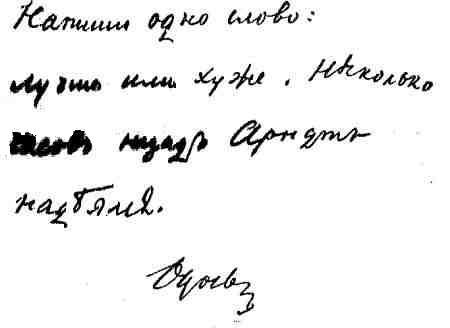 Напиши одно слово:
лучше или хуже. Нѣсколько
часовъ назадъ Арндтъ
надѣялся.